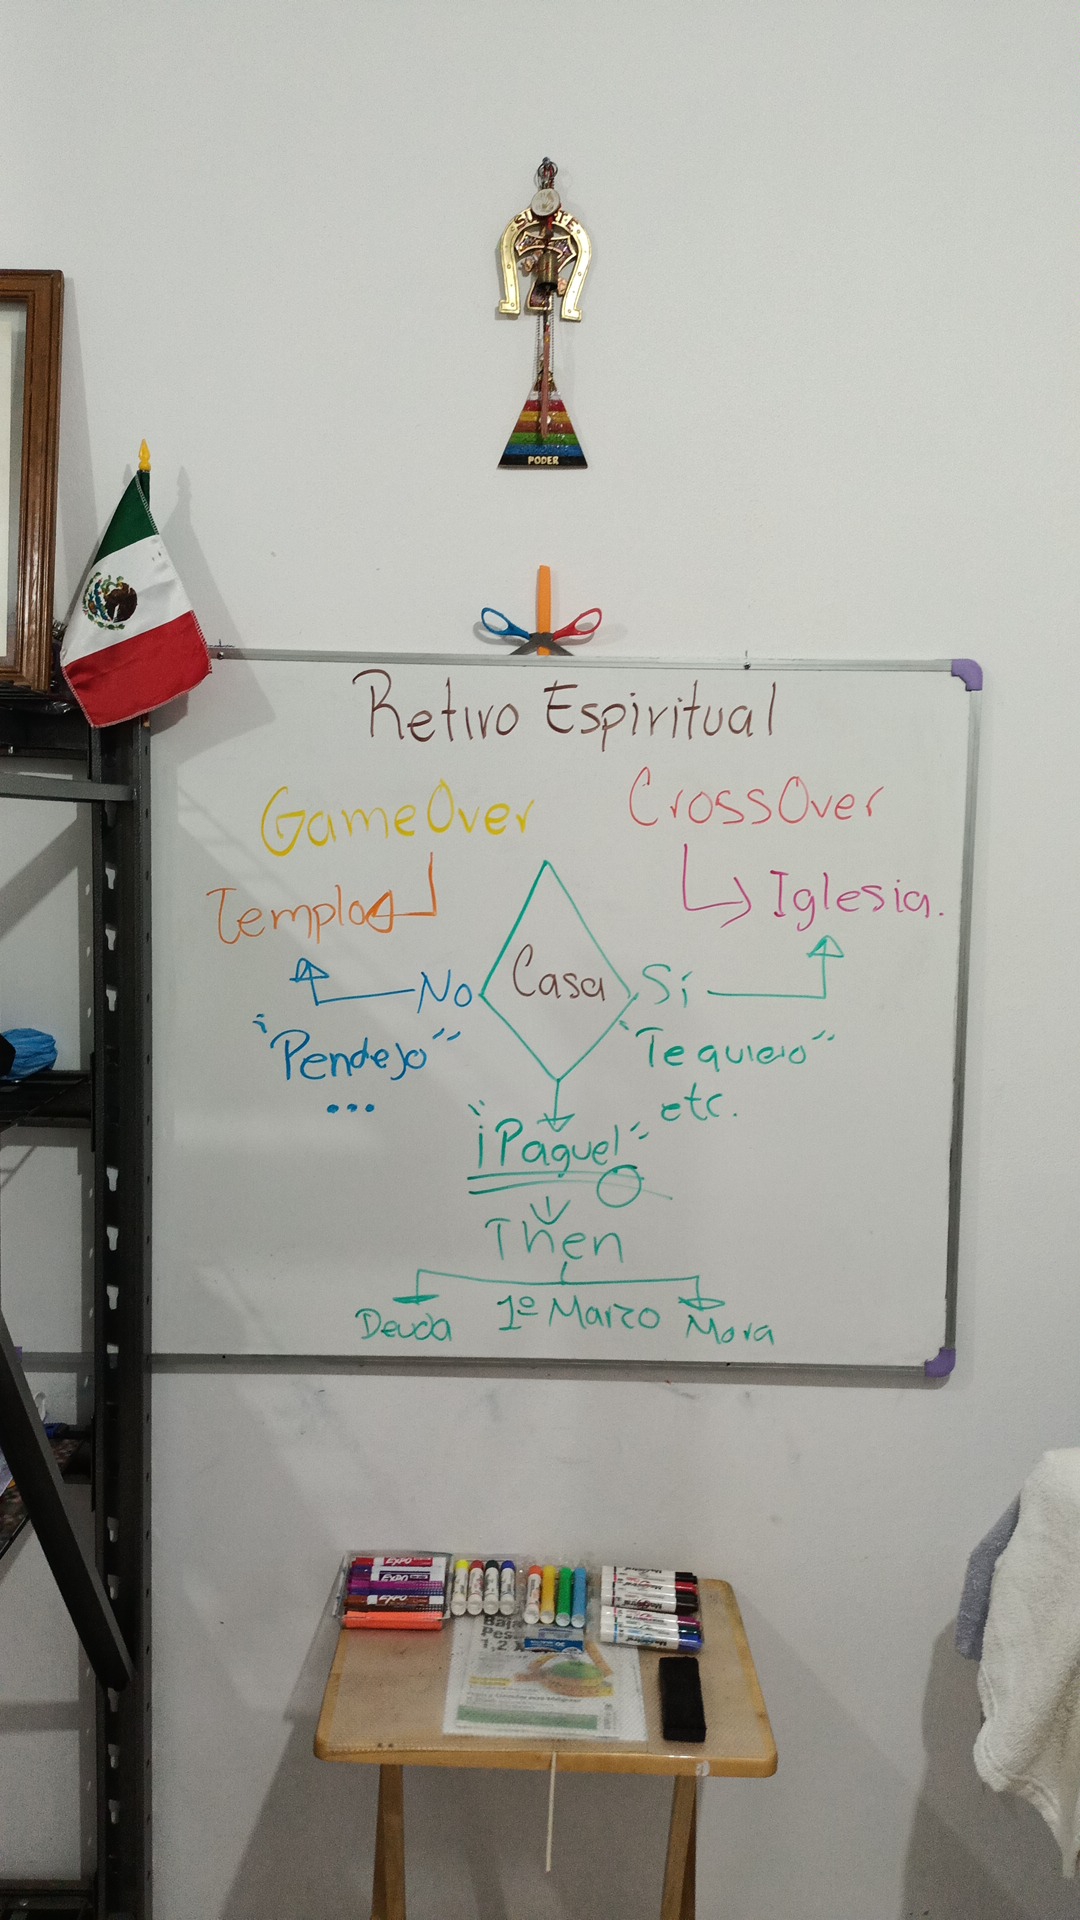 SUERTE
PODER
Retiro Espiritual
GameOver
CrossOver
Templo
Iglesia.
No
Casa
Sí
"Pendejo"
"Te quiero"
...
etc.
"¡Pague!"
Then
Deuda
1º Marzo
Mora
EXPO
EXPO
EXPO
Baja
Pes
1,2 X